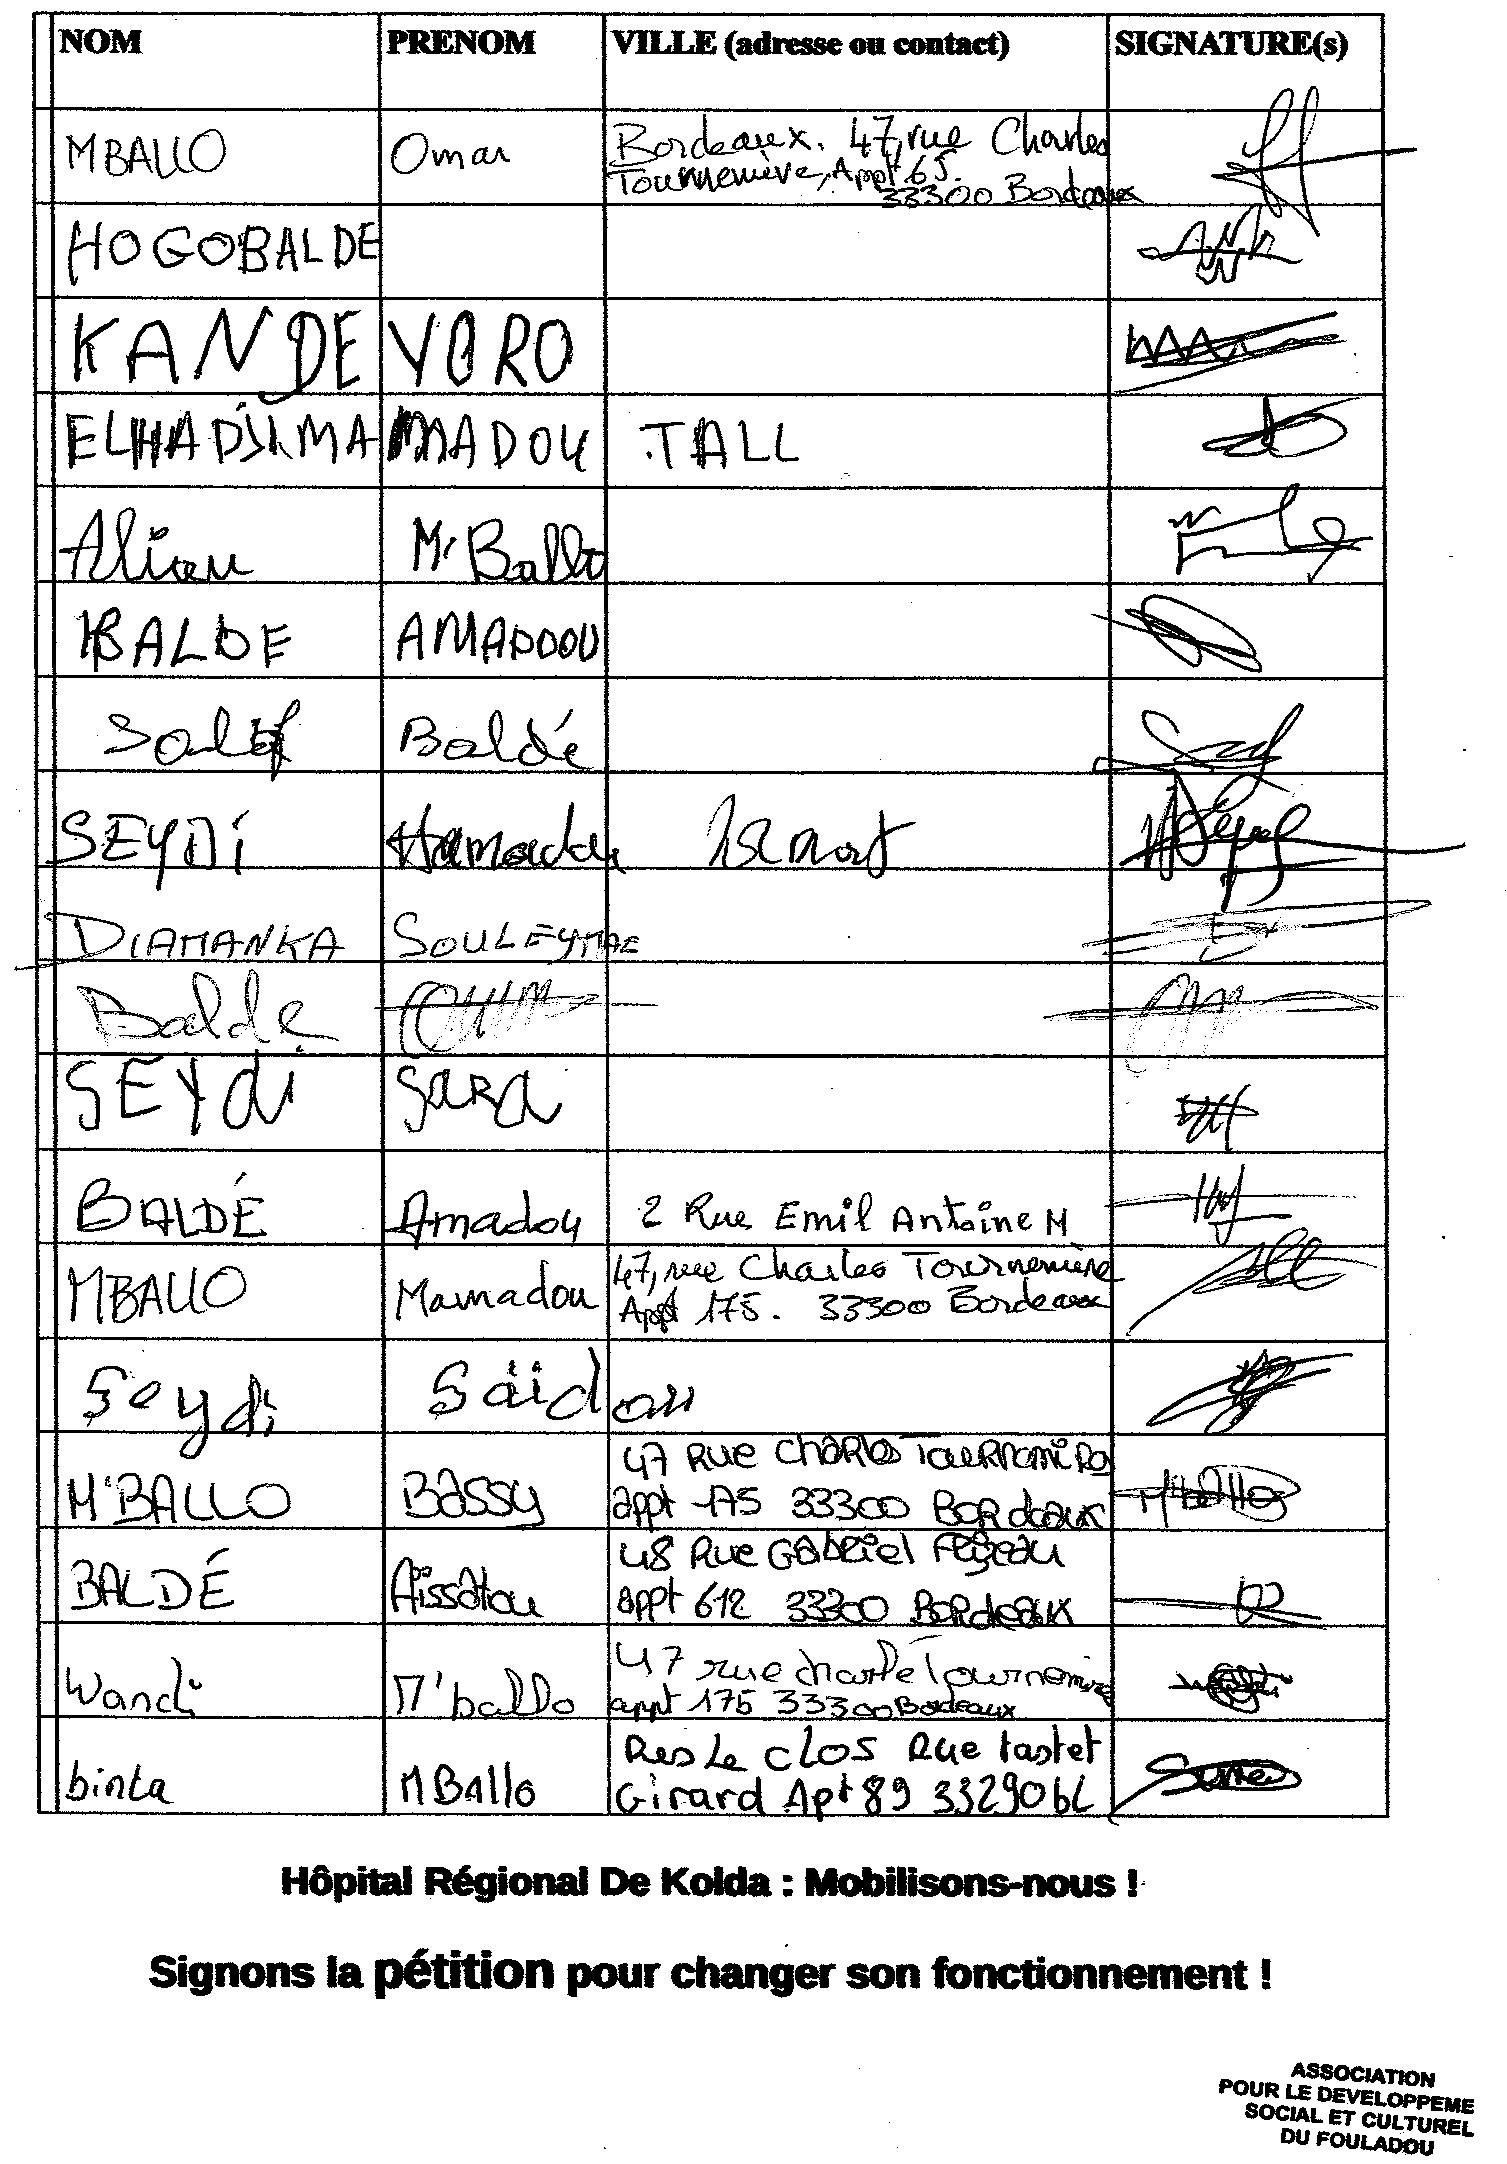 NOM PRENOM VILLE (adresse ou contact) SIGNATURE(s)
MBALLO Omar Bordeaux. 47, rue Charles
Tournemire, Appt 65.
33300 Bordeaux
HOGOBALDE
KANDE YORO
ELHADJI MA MADOU TALL
Aliou M'Ballo
BALDE AMADOOU
Salif Baldé
SEYDi Hamadou
DIAMANKA SOULEYMAE
Balde
SEYdi SARA
BALDÉ Amadou 2 Rue Emil Antoine M
MBALLO Mamadou 47, rue Charles Tournemire
Appt 175. 33300 Bordeaux
Seydi Saïdou
M'BALLO BASSY 47 Rue CHARles TouRnemiRe
appt 175 33300 BORdeaux
BALDÉ Aïssatou 48 Rue GABRiel
appt 612 33300 BORdeaux
Wandi M'ballo 47 rue charle Tournemire
appt 175 33300 Bordeaux
binta MBAllo Res Le clos Rue tastet
Girard Apt 89 33290 bL
Hôpital Régional De Kolda : Mobilisons-nous !
Signons la pétition pour changer son fonctionnement !
ASSOCIATION
POUR LE DEVELOPPEME
SOCIAL ET CULTUREL
DU FOULADOU